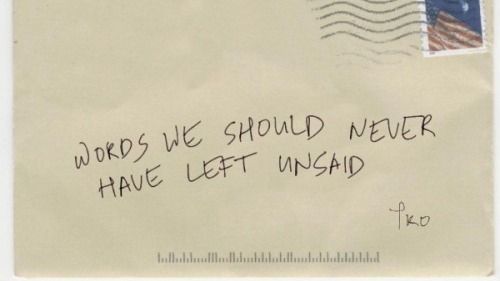 WORDS WE SHOULD NEVER
HAVE LEFT UNSAID